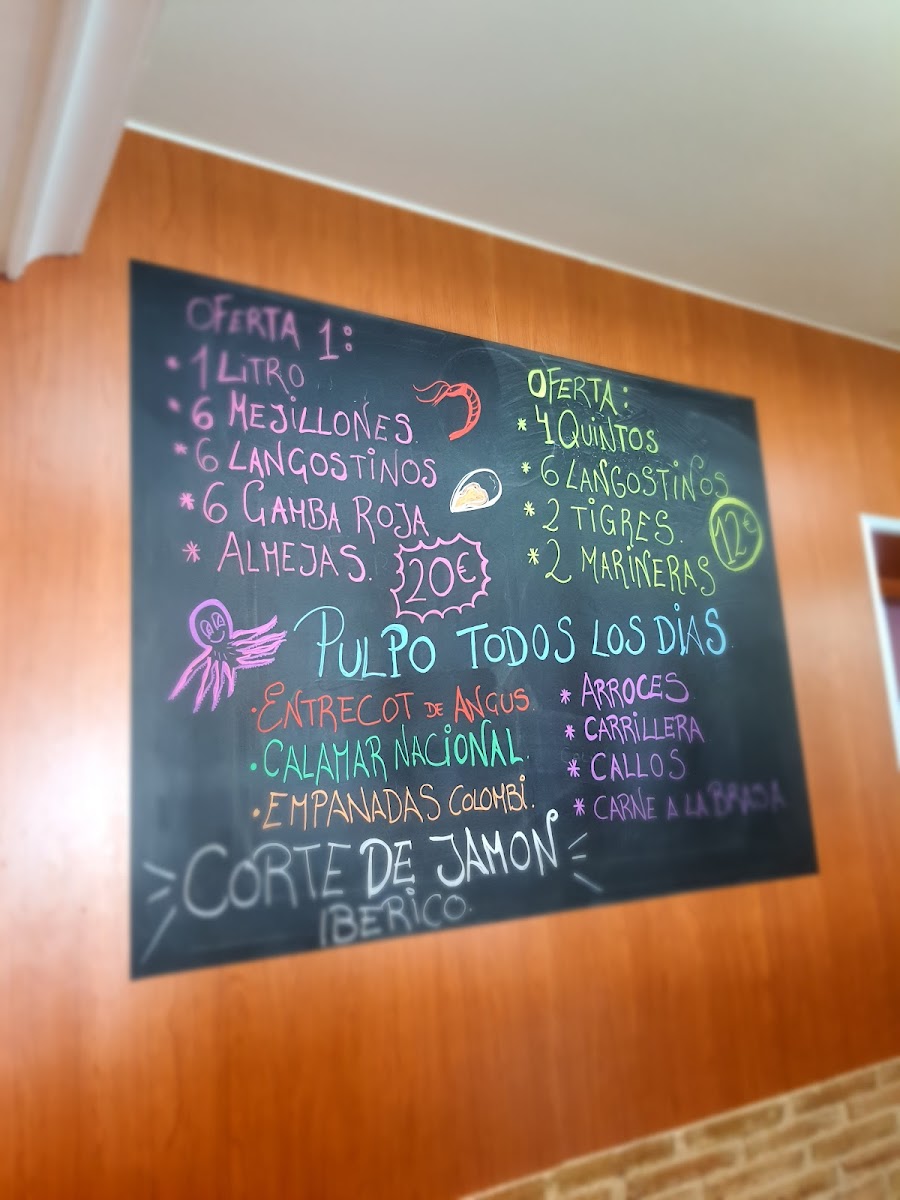 OFERTA 1:
• 1 LiTRO
* 6 MEJiLLONES
* 6 LANGOSTiNOS
* 6 GAMBA ROJA
* ALMEJAS.
20€
OFERTA:
* 4 QUiNTOS
* 6 LANGOSTiNOS
* 2 TiGRES.
* 2 MARiNERAS
12€
PULPO TODOS LOS DiAS.
• ENTRECOT DE ANGUS
• CALAMAR NACiONAL.
• EMPANADAS COLOMBi.
* ARROCES
* CARRiLLERA
* CALLOS
* CARNE A LA BRASA
CORTE DE JAMON
IBERiCO.